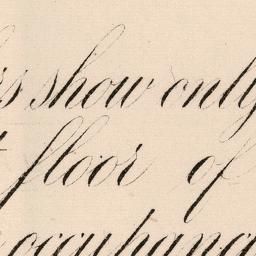 s show only
floor of
occupanc